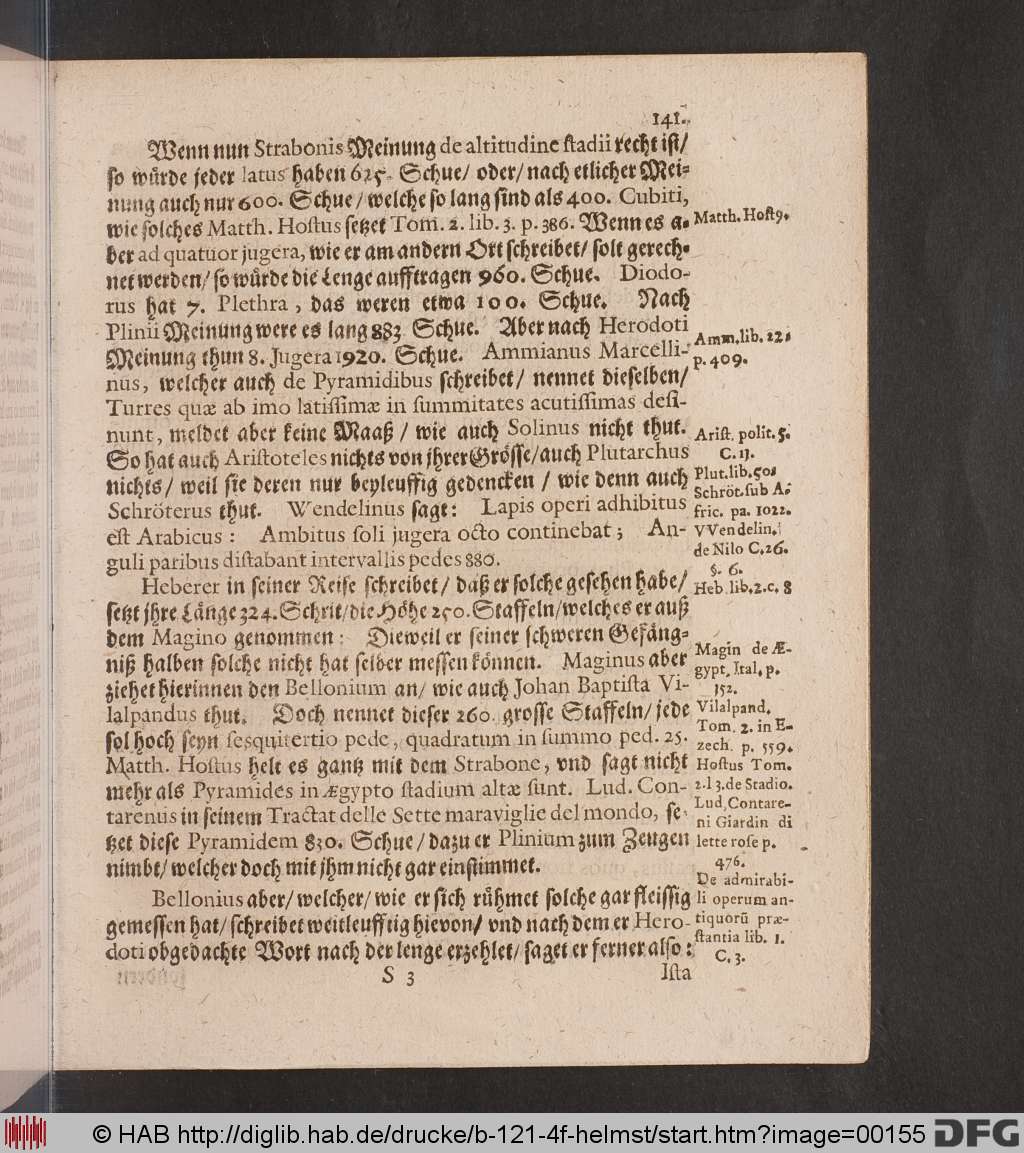 141.
Wenn nun Strabonis Meinung de altitudine stadii recht ist/
so würde jeder latus haben 625. Schue/ oder/ nach etlicher Mei-
nung auch nur 600. Schue/ welche so lang sind als 400. Cubiti,
wie solches Matth. Hostus setzet Tom. 2. lib. 3. p. 386. Wenn es a-
Matth. Host9.
ber ad quatuor jugera, wie er am andern Ort schreibet/ solt gerech-
net werden/ so würde die Lenge aufftragen 960. Schue. Diodo-
rus hat 7. Plethra, das weren etwa 100. Schue. Nach
Plinii Meinung were es lang 883 Schue. Aber nach Herodoti
Amm. lib. 22.
Meinung thun 8. Jugera 1920. Schue. Ammianus Marcelli-
p. 409.
nus, welcher auch de Pyramidibus schreibet/ nennet dieselben/
Turres quæ ab imo latissimæ in summitates acutissimas desi-
nunt, meldet aber keine Maaß/ wie auch Solinus nicht thut.
Arist. polit. 5.
So hat auch Aristoteles nichts von jhrer Grösse/ auch Plutarchus
C. 11.
nichts/ weil sie deren nur beyleuffig gedencken/ wie denn auch
Plut. lib. 50.
Schröt. sub A-
Schröterus thut. Wendelinus sagt: Lapis operi adhibitus
fric. pa. 1022.
est Arabicus: Ambitus soli jugera octo continebat; An-
VVendelin.
guli paribus distabant intervallis pedes 880.
de Nilo C. 26.
§. 6.
Heberer in seiner Reise schreibet/ daß er solche gesehen habe/
Heb. lib. 2. c. 8
setzt jhre Länge 324. Schrit/ die Höhe 250. Staffeln/ welches er auß
dem Magino genommen: Dieweil er seiner schweren Gefäng-
niß halben solche nicht hat selber messen können. Maginus aber
Magin de Æ-
gypt. Ital. p.
ziehet hierinnen den Bellonium an/ wie auch Johan Baptista Vi-
152.
lalpandus thut. Doch nennet dieser 260. grosse Staffeln/ jede
Vilalpand.
Tom. 2. in E-
sol hoch seyn sesquitertio pede, quadratum in summo ped. 25.
zech. p. 559.
Matth. Hostus helt es gantz mit dem Strabone, vnd sagt nicht
Hostus Tom.
mehr als Pyramides in Ægypto stadium altæ sunt. Lud. Con-
2. l 3. de Stadio.
tarenus in seinem Tractat delle Sette maraviglie del mondo, se-
Lud. Contare-
ni Giardin di
tzet diese Pyramidem 830. Schue/ dazu er Plinium zum Zeugen
lette rose p.
nimbt/ welcher doch mit jhm nicht gar einstimmet.
476.
De admirabi-
Bellonius aber/ welcher/ wie er sich rühmet solche gar fleissig
li operum an-
gemessen hat/ schreibet weitleufftig hievon/ vnd nach dem er Hero-
tiquorū præ-
doti obgedachte Wort nach der lenge erzehlet/ saget er ferner also:
stantia lib. 1.
C. 3.
S 3
Ista
© HAB http://diglib.hab.de/drucke/b-121-4f-helmst/start.htm?image=00155
DFG